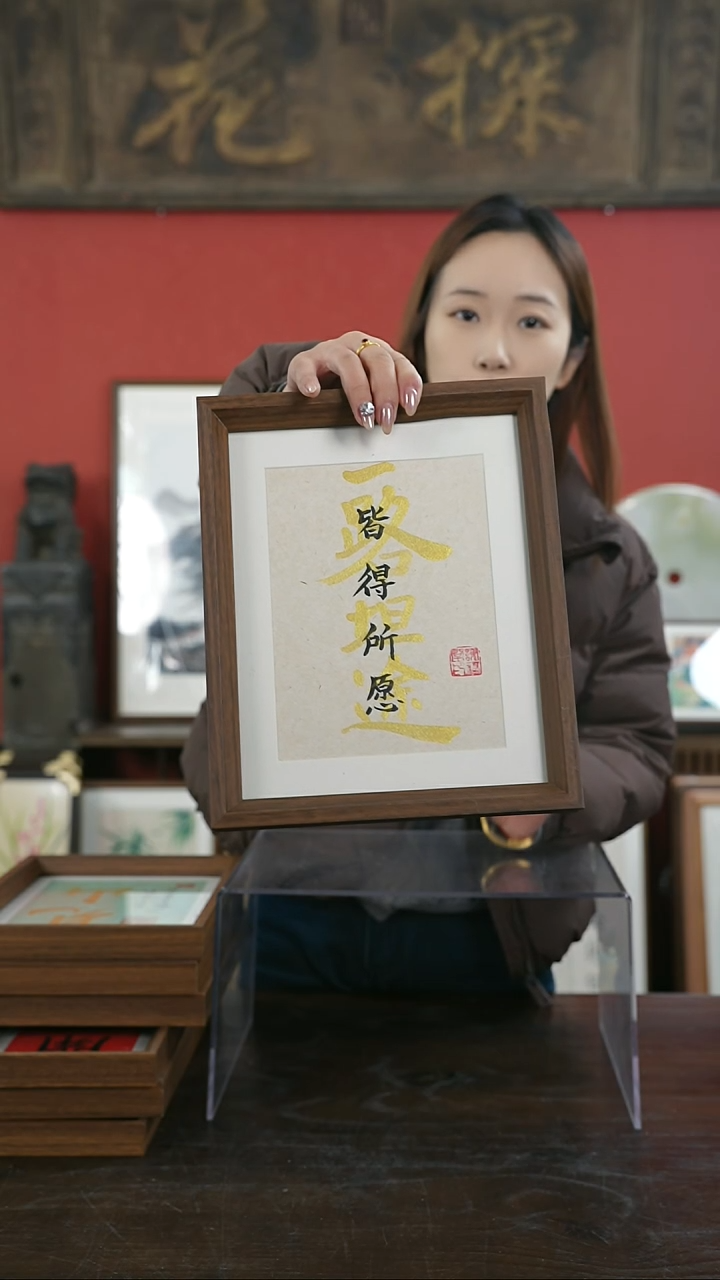 探花
一路坦途
皆得所愿